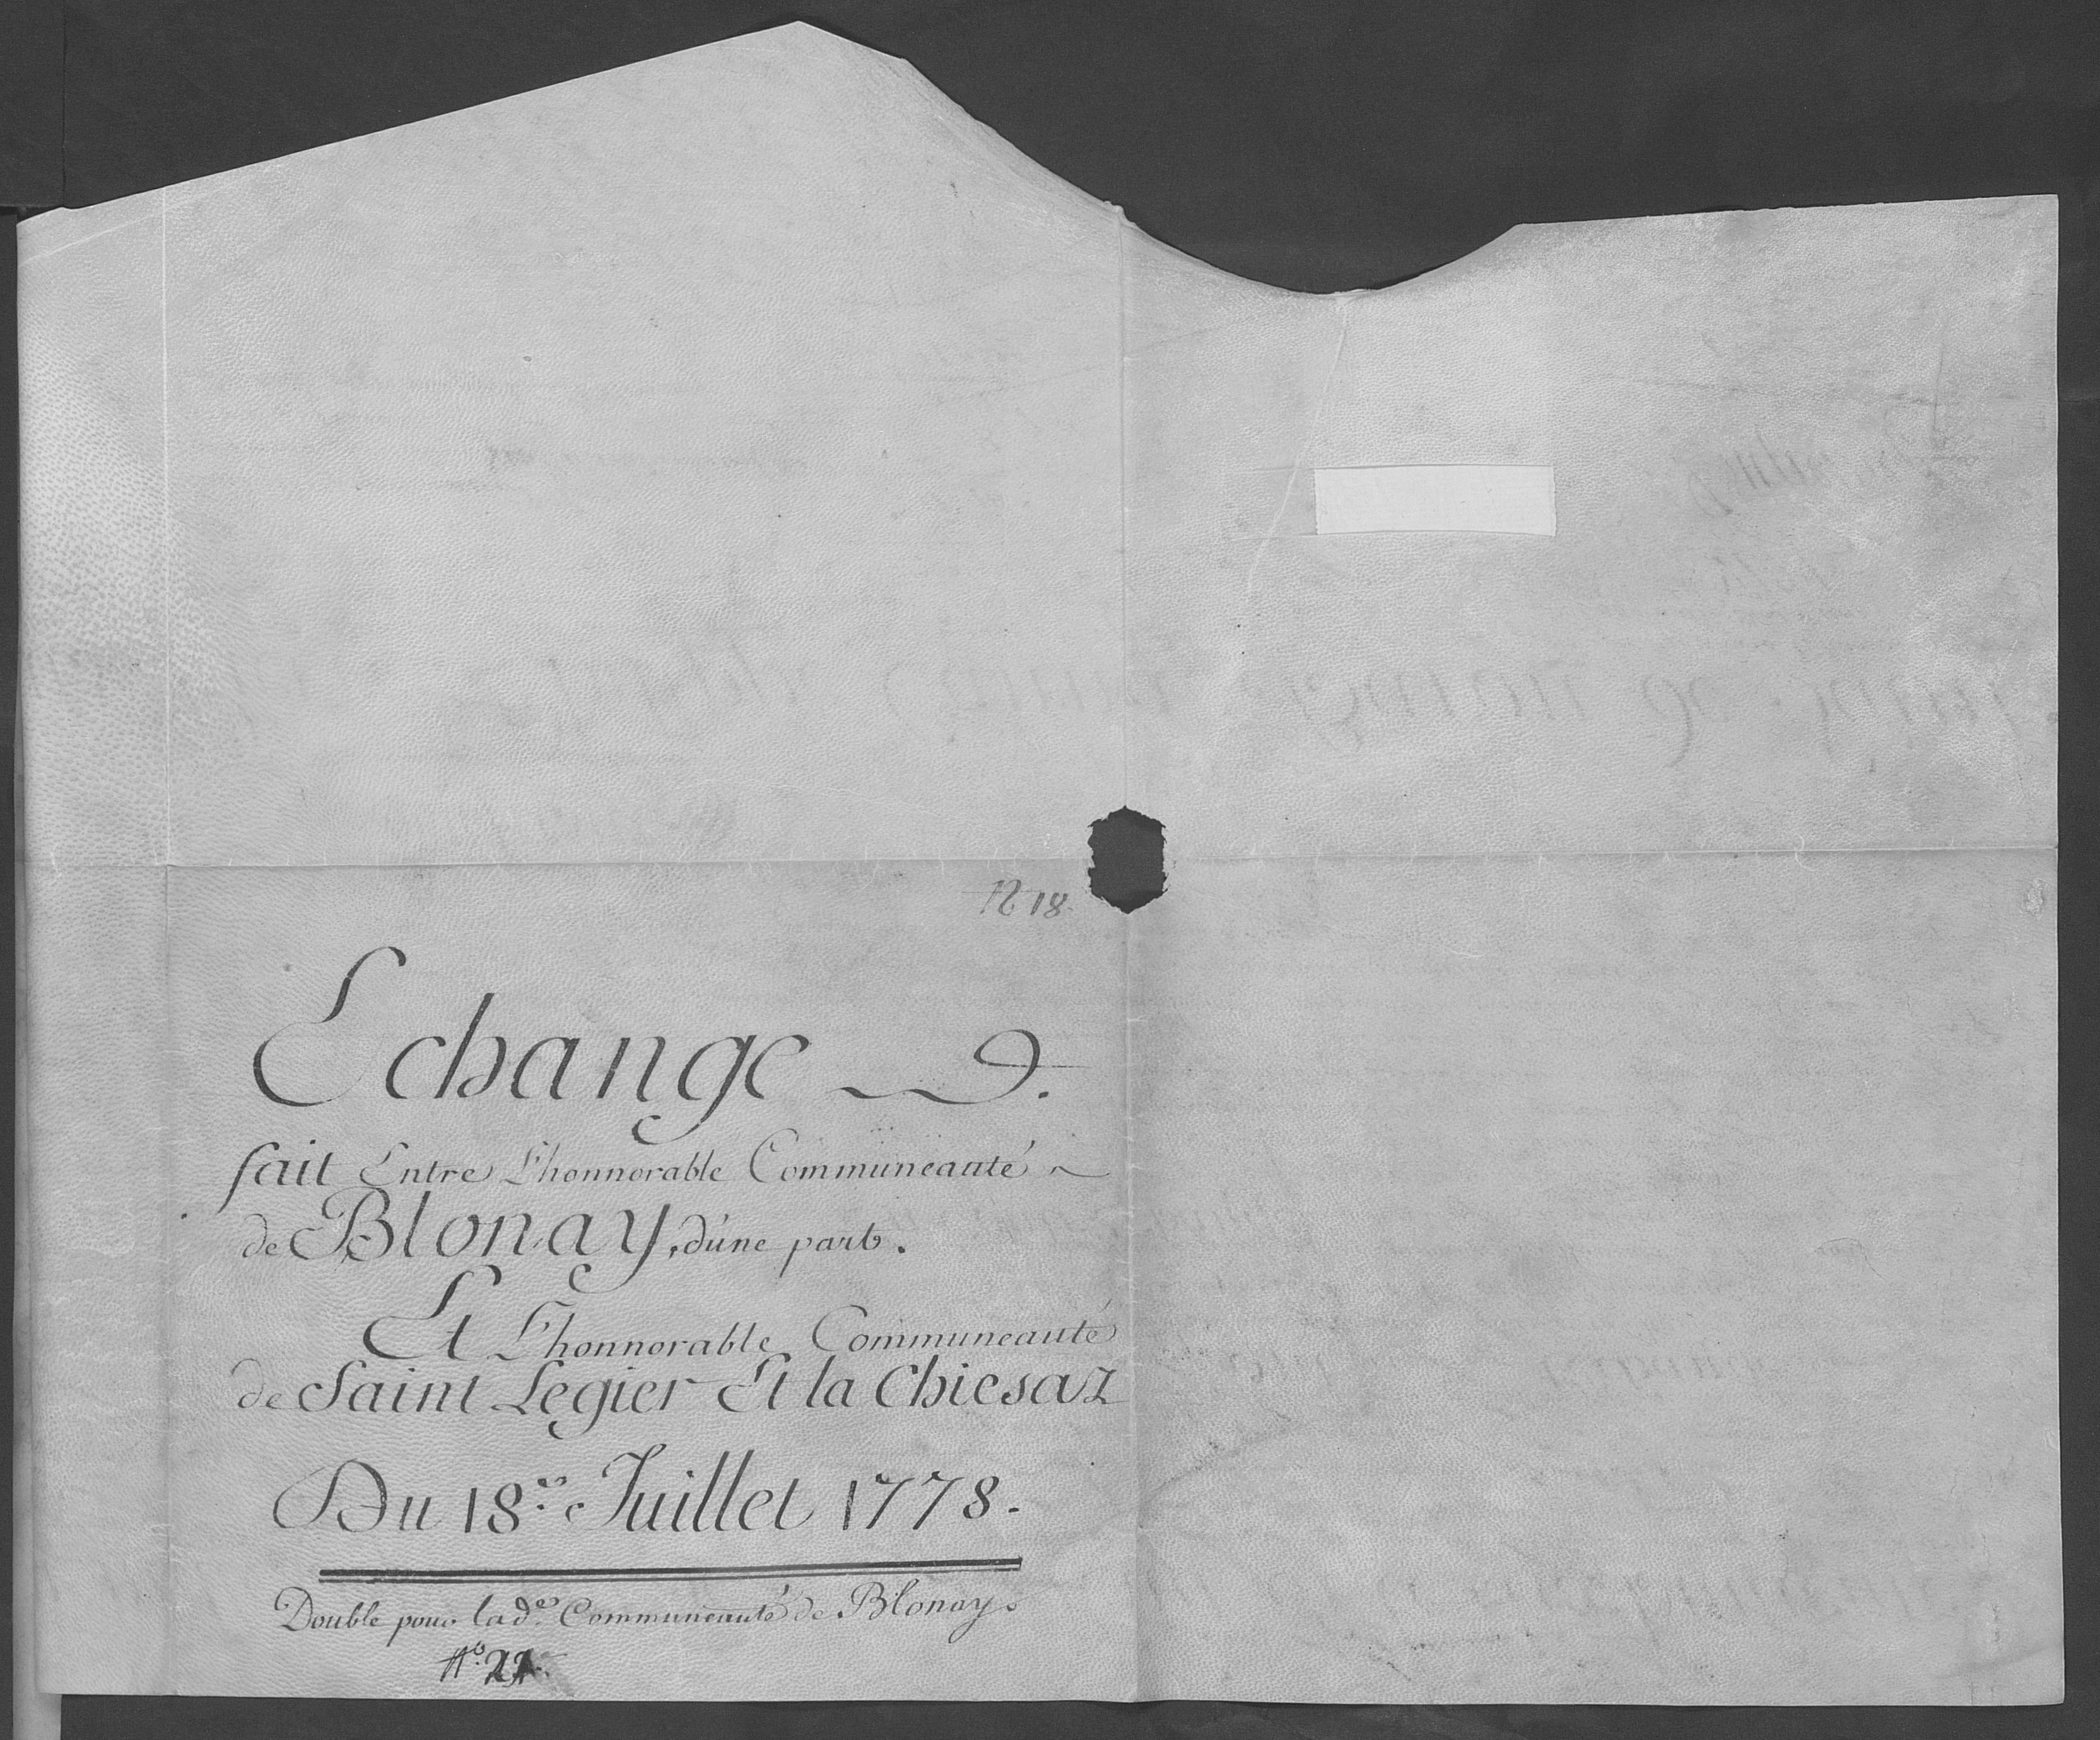 N° 18.
Echange
fait Entre L'honnorable Communeauté
de Blonay, d'une part.
Et L'honnorable Communeauté
de Saint Legier Et la Chiesaz
Du 18.e Juillet 1778.
Double pour lad.e Communeauté de Blonay.
N.°